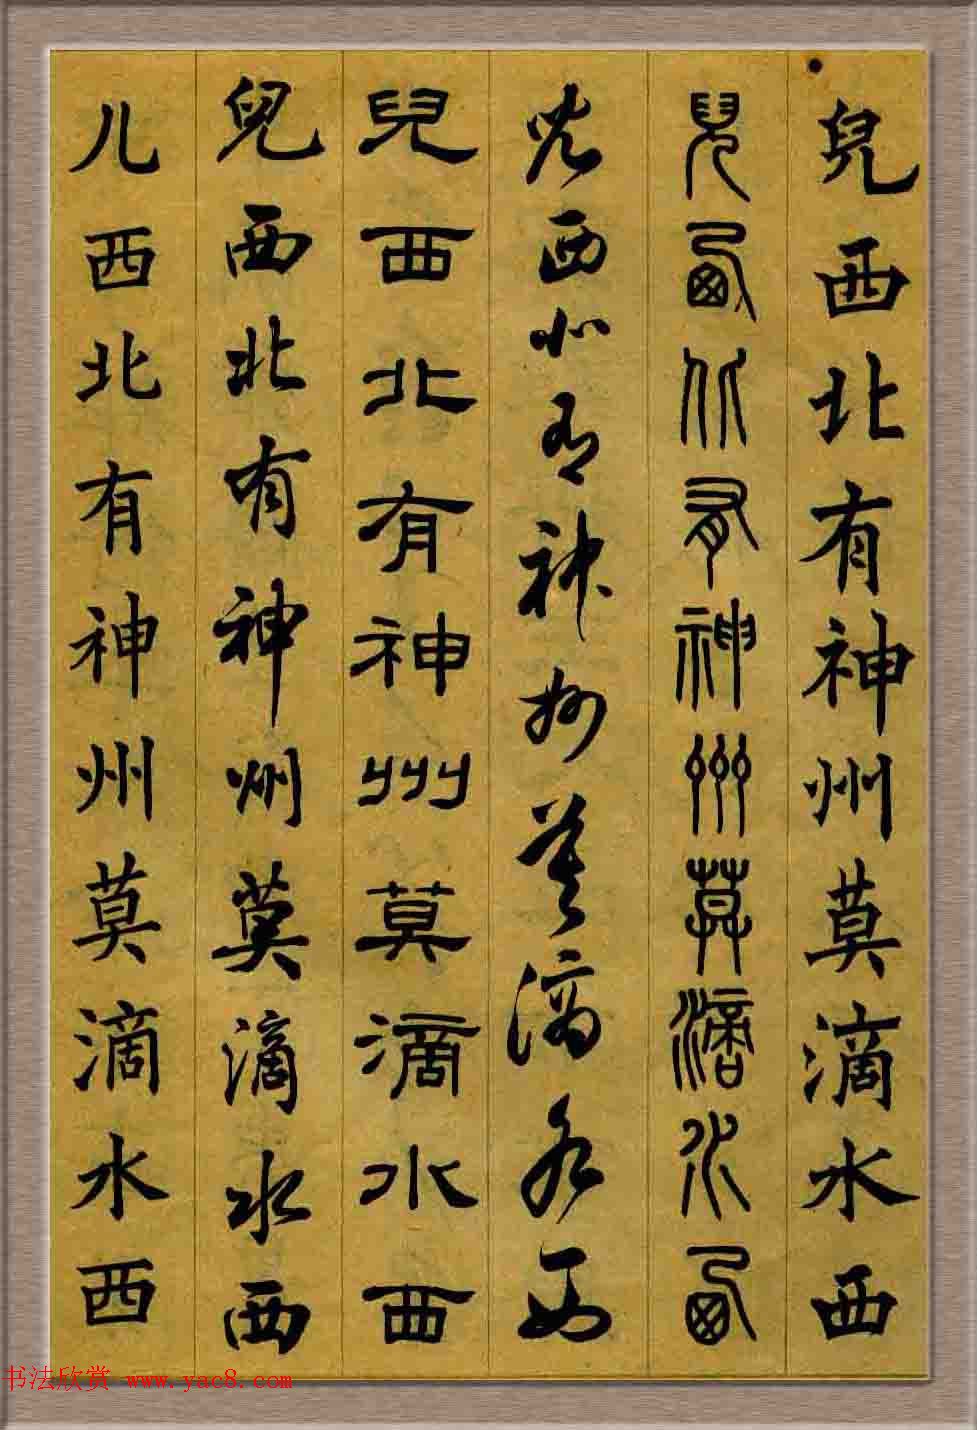 兒西北有神州莫滴水西
兒西北有神州莫滴水西
兒西北有神州莫滴水西
兒西北有神州莫滴水西
兒西北有神州莫滴水西
儿西北有神州莫滴水西
书法欣赏 www.yac8.com